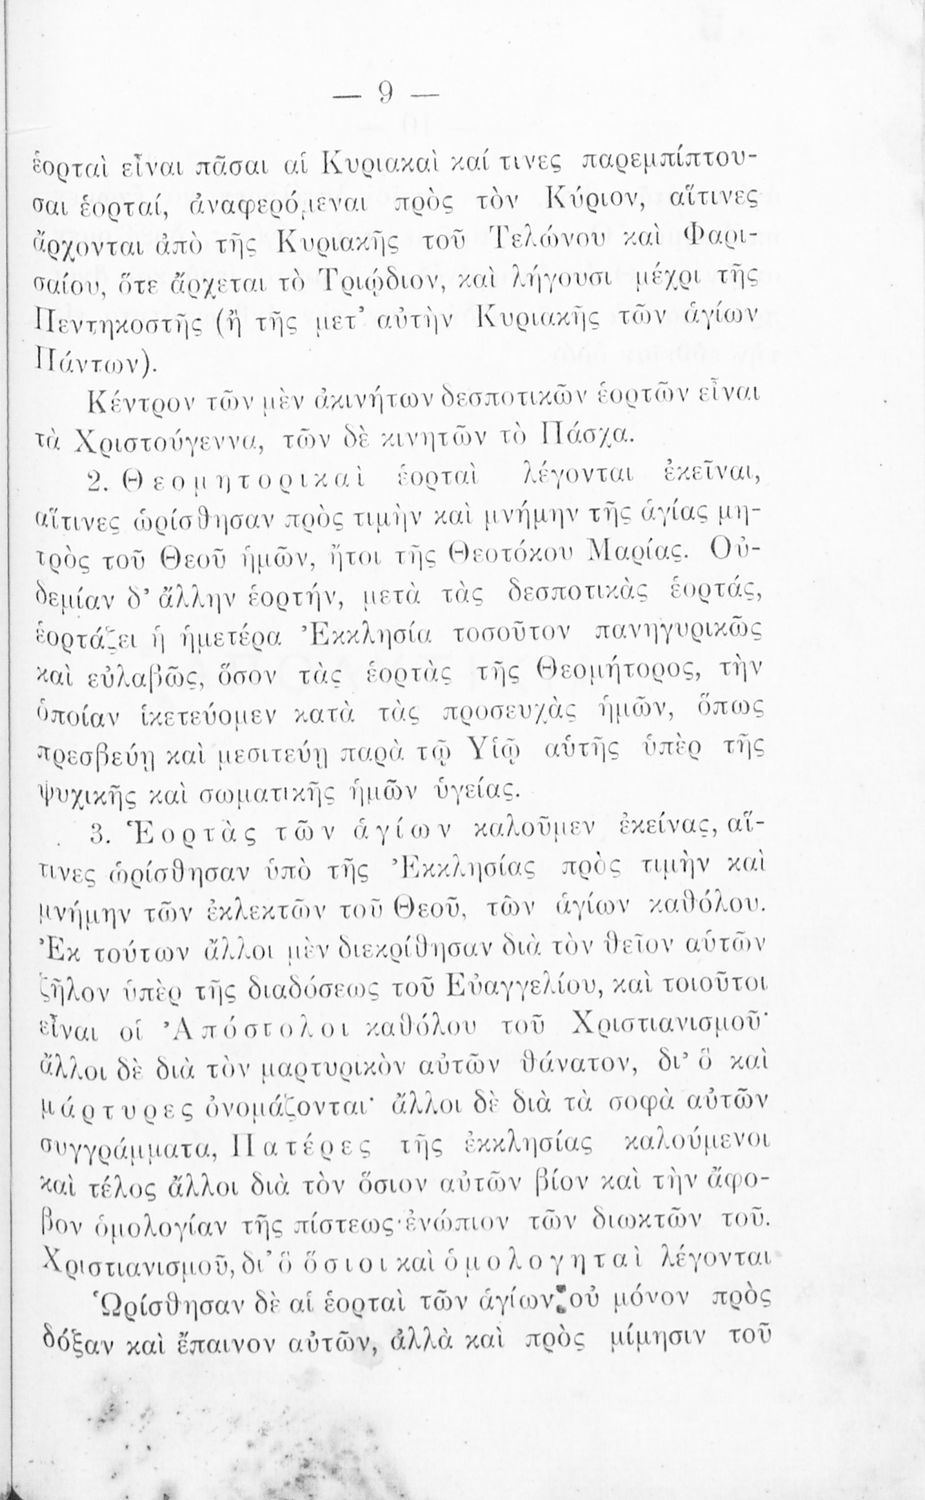 — 9 —
ἑορταὶ εἶναι πᾶσαι αἱ Κυριακαὶ καί τινες παρεμπίπτου-
σαι ἑορταί, ἀναφερόμεναι πρὸς τὸν Κύριον, αἵτινες
ἄρχονται ἀπὸ τῆς Κυριακῆς τοῦ Τελώνου καὶ Φαρι-
σαίου, ὅτε ἄρχεται τὸ Τριῴδιον, καὶ λήγουσι μέχρι τῆς
Πεντηκοστῆς (ἢ τῆς μετ’ αὐτὴν Κυριακῆς τῶν ἁγίων
Πάντων).
Κέντρον τῶν μὲν ἀκινήτων δεσποτικῶν ἑορτῶν εἶναι
τὰ Χριστούγεννα, τῶν δὲ κινητῶν τὸ Πάσχα.
2. Θεομητορικαὶ ἑορταὶ λέγονται ἐκεῖναι,
αἵτινες ὡρίσθησαν πρὸς τιμὴν καὶ μνήμην τῆς ἁγίας μη-
τρὸς τοῦ Θεοῦ ἡμῶν, ἤτοι τῆς Θεοτόκου Μαρίας. Οὐ-
δεμίαν δ’ ἄλλην ἑορτήν, μετὰ τὰς δεσποτικὰς ἑορτάς,
ἑορτάζει ἡ ἡμετέρα Ἐκκλησία τοσοῦτον πανηγυρικῶς
καὶ εὐλαβῶς, ὅσον τὰς ἑορτὰς τῆς Θεομήτορος, τὴν
ὁποίαν ἱκετεύομεν κατὰ τὰς προσευχὰς ἡμῶν, ὅπως
πρεσβεύῃ καὶ μεσιτεύῃ παρὰ τῷ Υἱῷ αὑτῆς ὑπὲρ τῆς
ψυχικῆς καὶ σωματικῆς ἡμῶν ὑγείας.
3. Ἑορτὰς τῶν ἁγίων καλοῦμεν ἐκείνας, αἵ-
τινες ὡρίσθησαν ὑπὸ τῆς Ἐκκλησίας πρὸς τιμὴν καὶ
μνήμην τῶν ἐκλεκτῶν τοῦ Θεοῦ, τῶν ἁγίων καθόλου.
Ἐκ τούτων ἄλλοι μὲν διεκρίθησαν διὰ τὸν θεῖον αὑτῶν
ζῆλον ὑπὲρ τῆς διαδόσεως τοῦ Εὐαγγελίου, καὶ τοιοῦτοι
εἶναι οἱ Ἀπόστολοι καθόλου τοῦ Χριστιανισμοῦ·
ἄλλοι δὲ διὰ τὸν μαρτυρικὸν αὐτῶν θάνατον, δι’ ὃ καὶ
μάρτυρες ὀνομάζονται· ἄλλοι δὲ διὰ τὰ σοφὰ αὐτῶν
συγγράμματα, Πατέρες τῆς ἐκκλησίας καλούμενοι
καὶ τέλος ἄλλοι διὰ τὸν ὅσιον αὐτῶν βίον καὶ τὴν ἄφο-
βον ὁμολογίαν τῆς πίστεως·ἐνώπιον τῶν διωκτῶν τοῦ.
Χριστιανισμοῦ, δι’ ὃ ὅσιοι καὶ ὁμολογηταὶ λέγονται
Ὡρίσθησαν δὲ αἱ ἑορταὶ τῶν ἁγίων οὐ μόνον πρὸς
δόξαν καὶ ἔπαινον αὐτῶν, ἀλλὰ καὶ πρὸς μίμησιν τοῦ